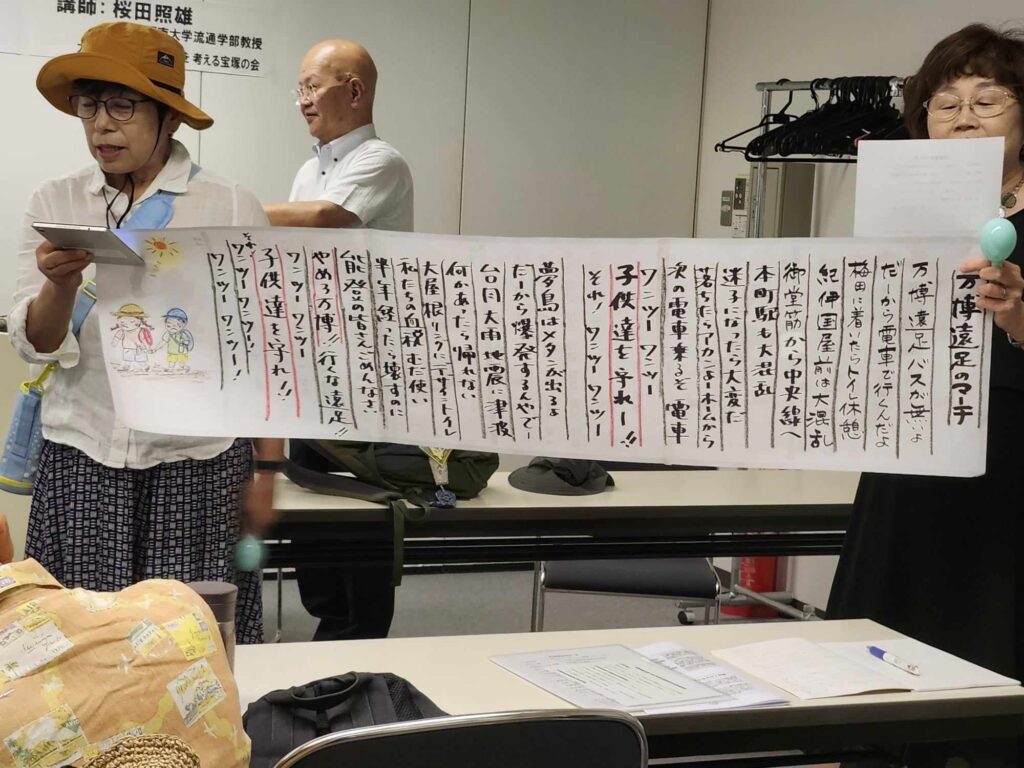 講師：桜田照雄
大学流通学部教授
を考える宝塚の会
万博遠足のマーチ
万博遠足バスが無いよ
だーから電車で行くんだよ
梅田に着いたらトイレ休憩
紀伊国屋前は大混乱
御堂筋から中央線へ
本町駅も大混乱
迷子になったら大変だ
落ちたらアカンよーホームから
次の電車乗るぞ 電車
ワンツー ワンツー
子供達を守れー!!
それッ ワンツー ワンツー
夢島はメタンが出るよ
だーから爆発するんやでー
台風大雨地震に津波
何かあったら帰れない
大屋根リングにデザイントイレ
私たちの血税むだ使い
半年経ったら壊すのに
能登の皆さんごめんなさい
やめろ万博!!行くな遠足!!
ワンツー ワンツー
子供達を守れ!!
それッ ワンツー ワンツー!
ワンツー ワンツー!